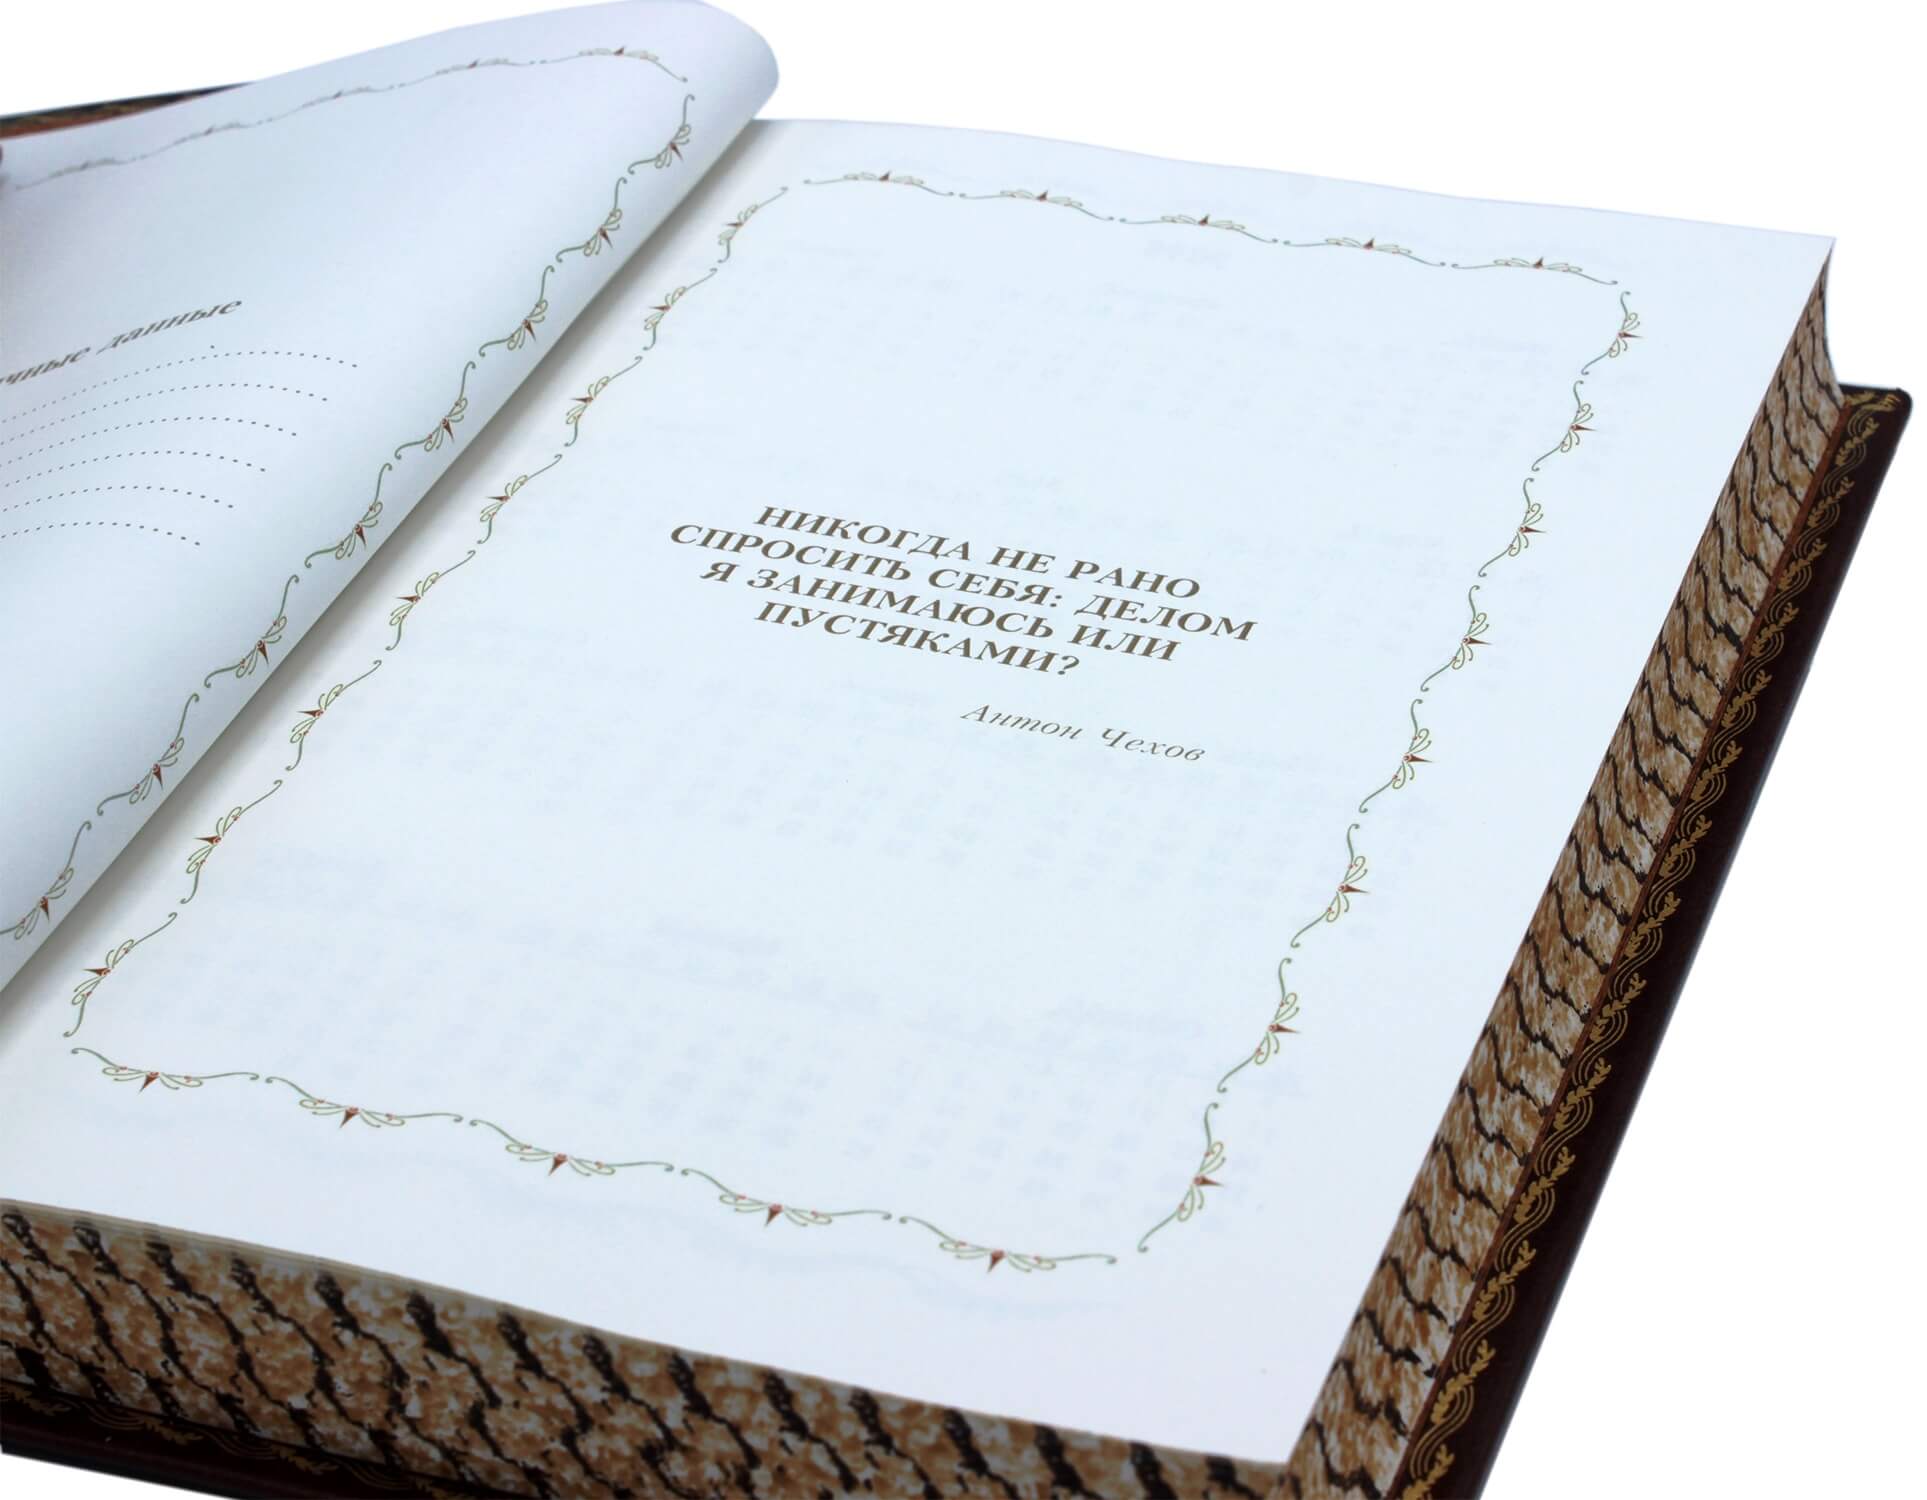 данные
НИКОГДА НЕ РАНО
СПРОСИТЬ СЕБЯ: ДЕЛОМ
Я ЗАНИМАЮСЬ ИЛИ
ПУСТЯКАМИ?
Антон Чехов